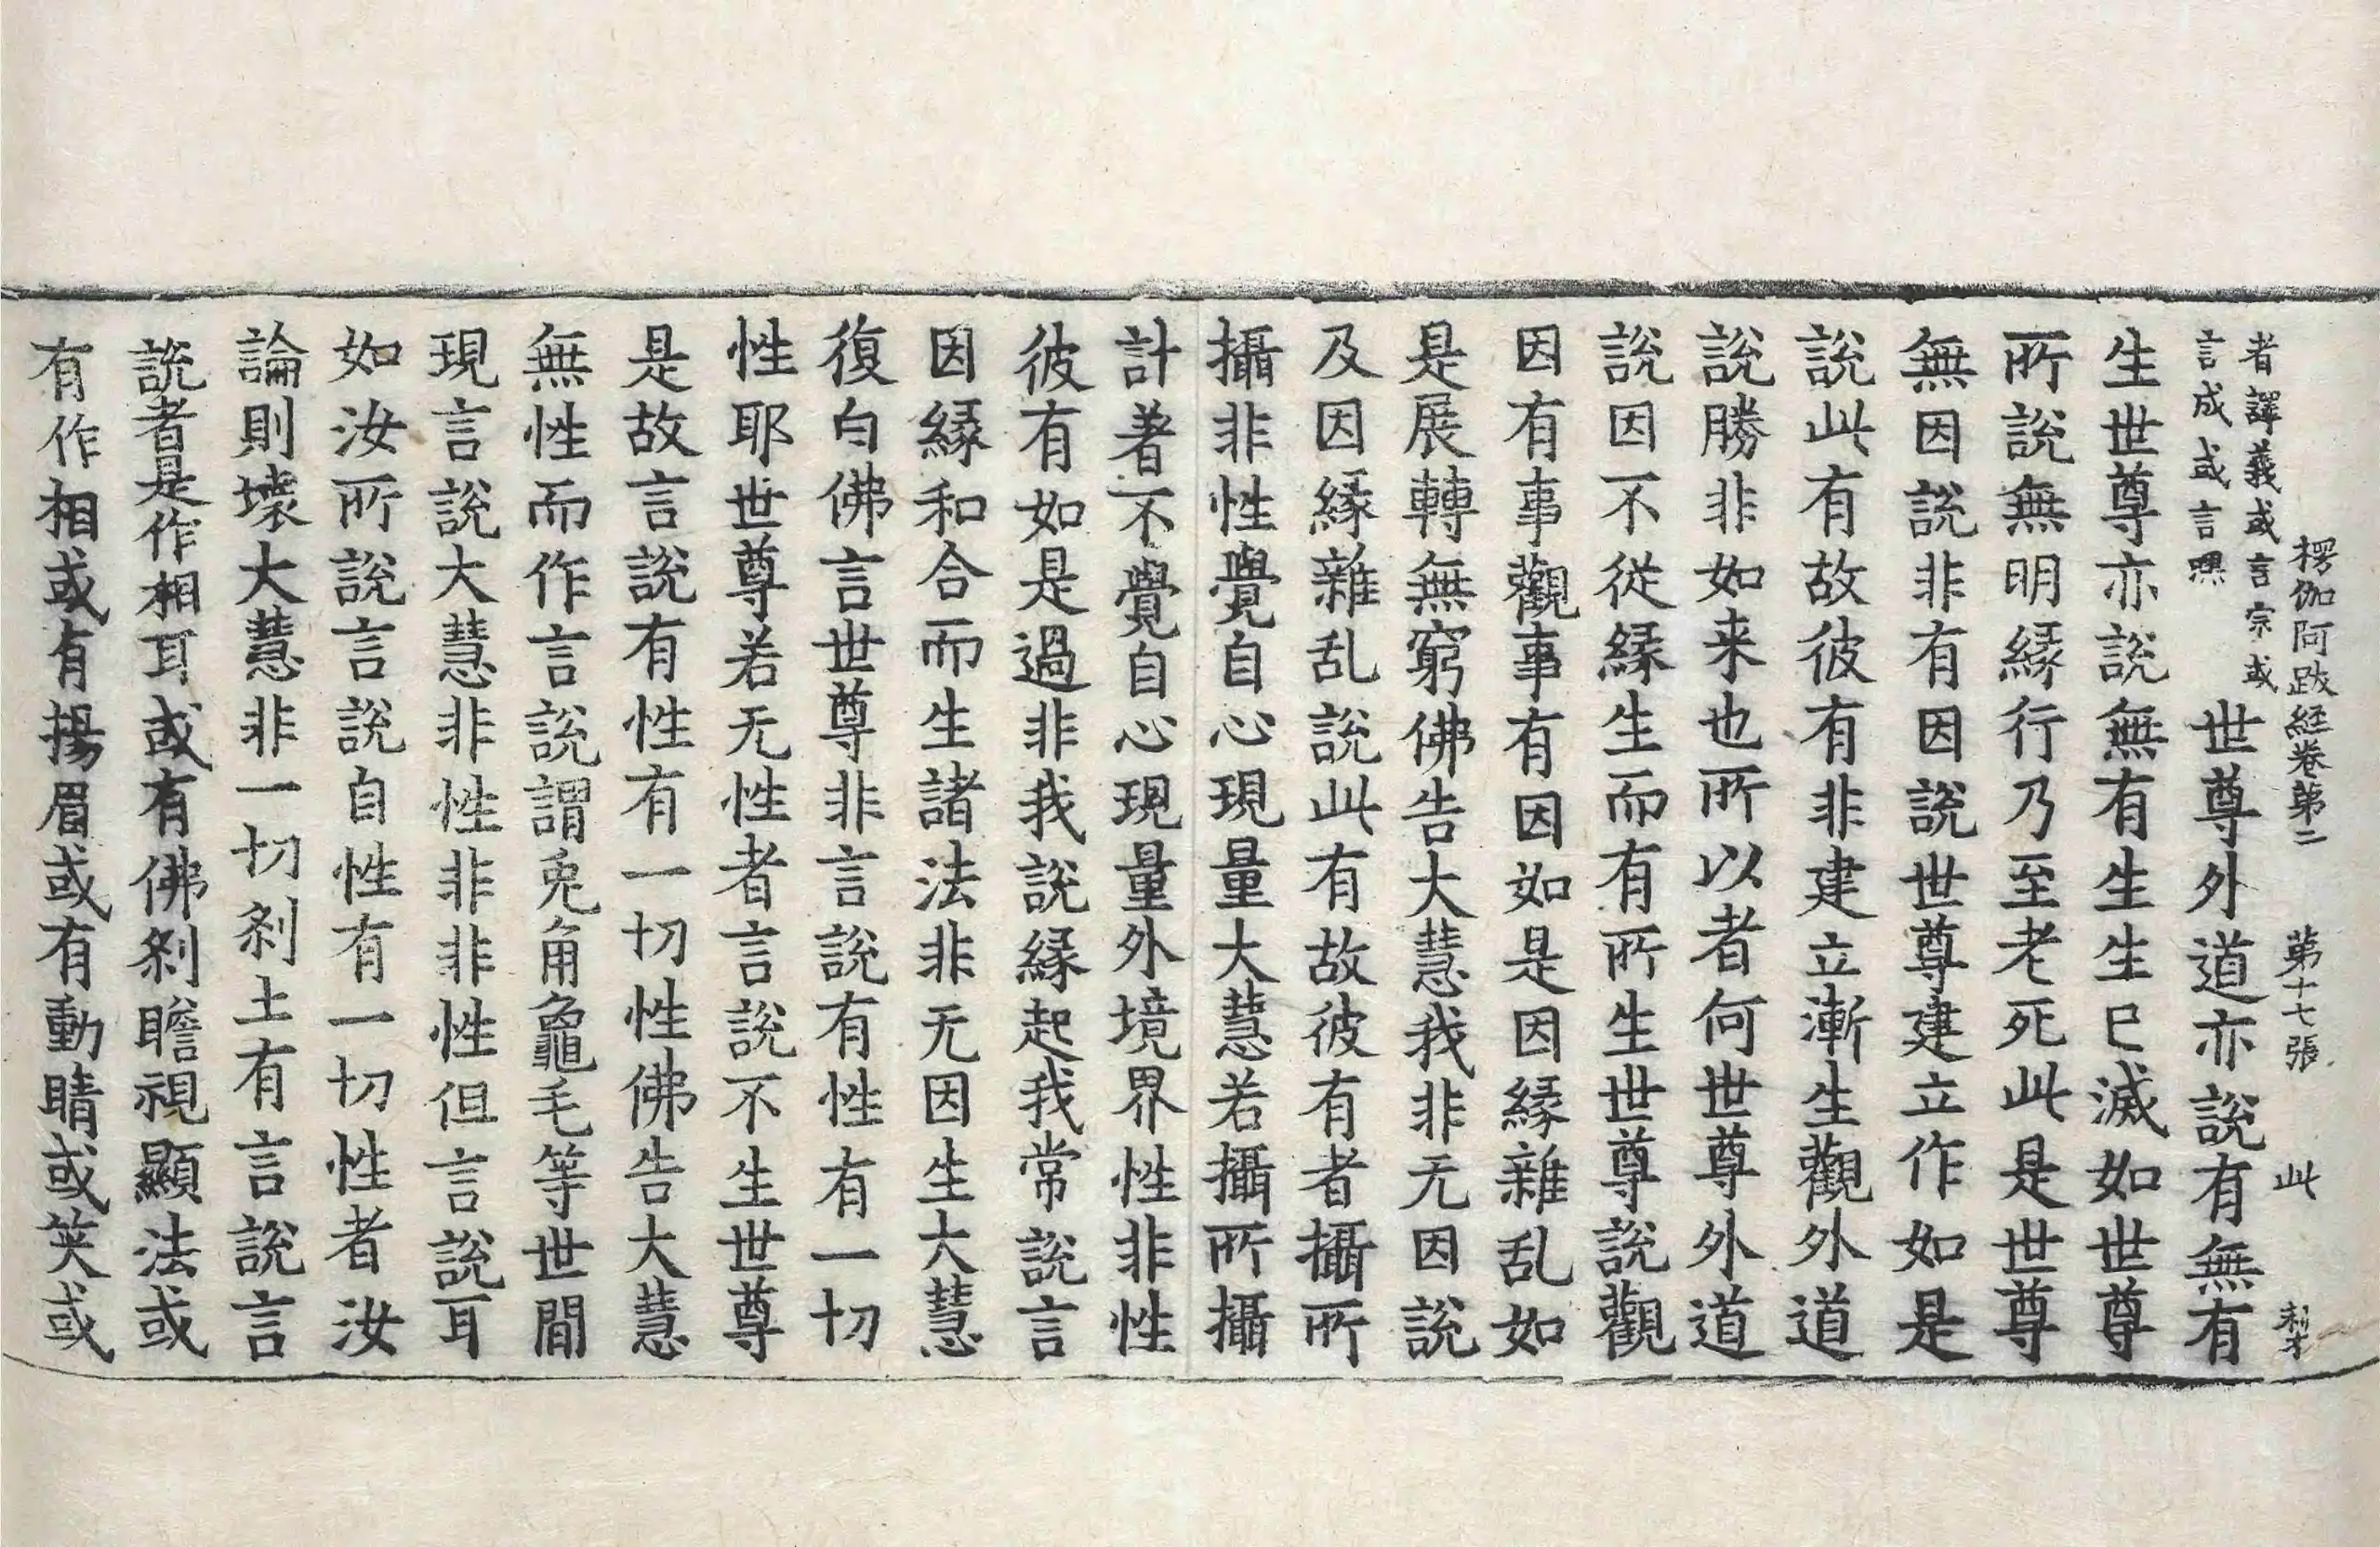 楞伽阿跋經卷第二 第十七張 此
者譯義或言宗或
言成或言嘿
世尊外道亦說有無有
生世尊亦說無有生生已滅如世尊
所說無明緣行乃至老死此是世尊
無因說非有因說世尊建立作如是
說此有故彼有非建立漸生觀外道
說勝非如来也所以者何世尊外道
說因不從緣生而有所生世尊說觀
因有事觀事有因如是因緣雜乱如
是展轉無窮佛告大慧我非无因說
及因緣雜乱說此有故彼有者攝所
攝非性覺自心現量大慧若攝所攝
計著不覺自心現量外境界性非性
彼有如是過非我說緣起我常說言
因緣和合而生諸法非无因生大慧
復白佛言世尊非言說有性有一切
性耶世尊若无性者言說不生世尊
是故言說有性有一切性佛告大慧
無性而作言說謂兎角龜毛等世間
現言說大慧非性非非性但言說耳
如汝所說言說自性有一切性者汝
論則壞大慧非一切刹土有言說言
說者是作相耳或有佛刹瞻視顯法或
有作相或有揚眉或有動睛或笑或